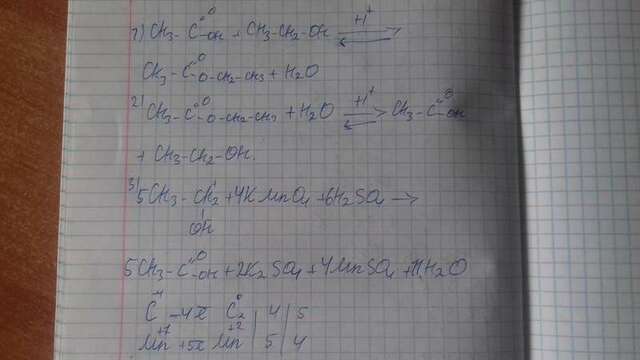 1) CH₃-C(=O)-OH + CH₃-CH₂-OH ⇄ (H⁺)
CH₃-C(=O)-O-CH₂-CH₃ + H₂O
2) CH₃-C(=O)-O-CH₂-CH₃ + H₂O ⇄ (H⁺) CH₃-C(=O)-OH
+ CH₃-CH₂-OH
3) 5CH₃-CH₂(OH) + 4KMnO₄ + 6H₂SO₄ →
5CH₃-C(=O)-OH + 2K₂SO₄ + 4MnSO₄ + 11H₂O
C⁻¹ -4ē C | 4 | 5
Mn⁺⁷ +5ē Mn⁺² | 5 | 4